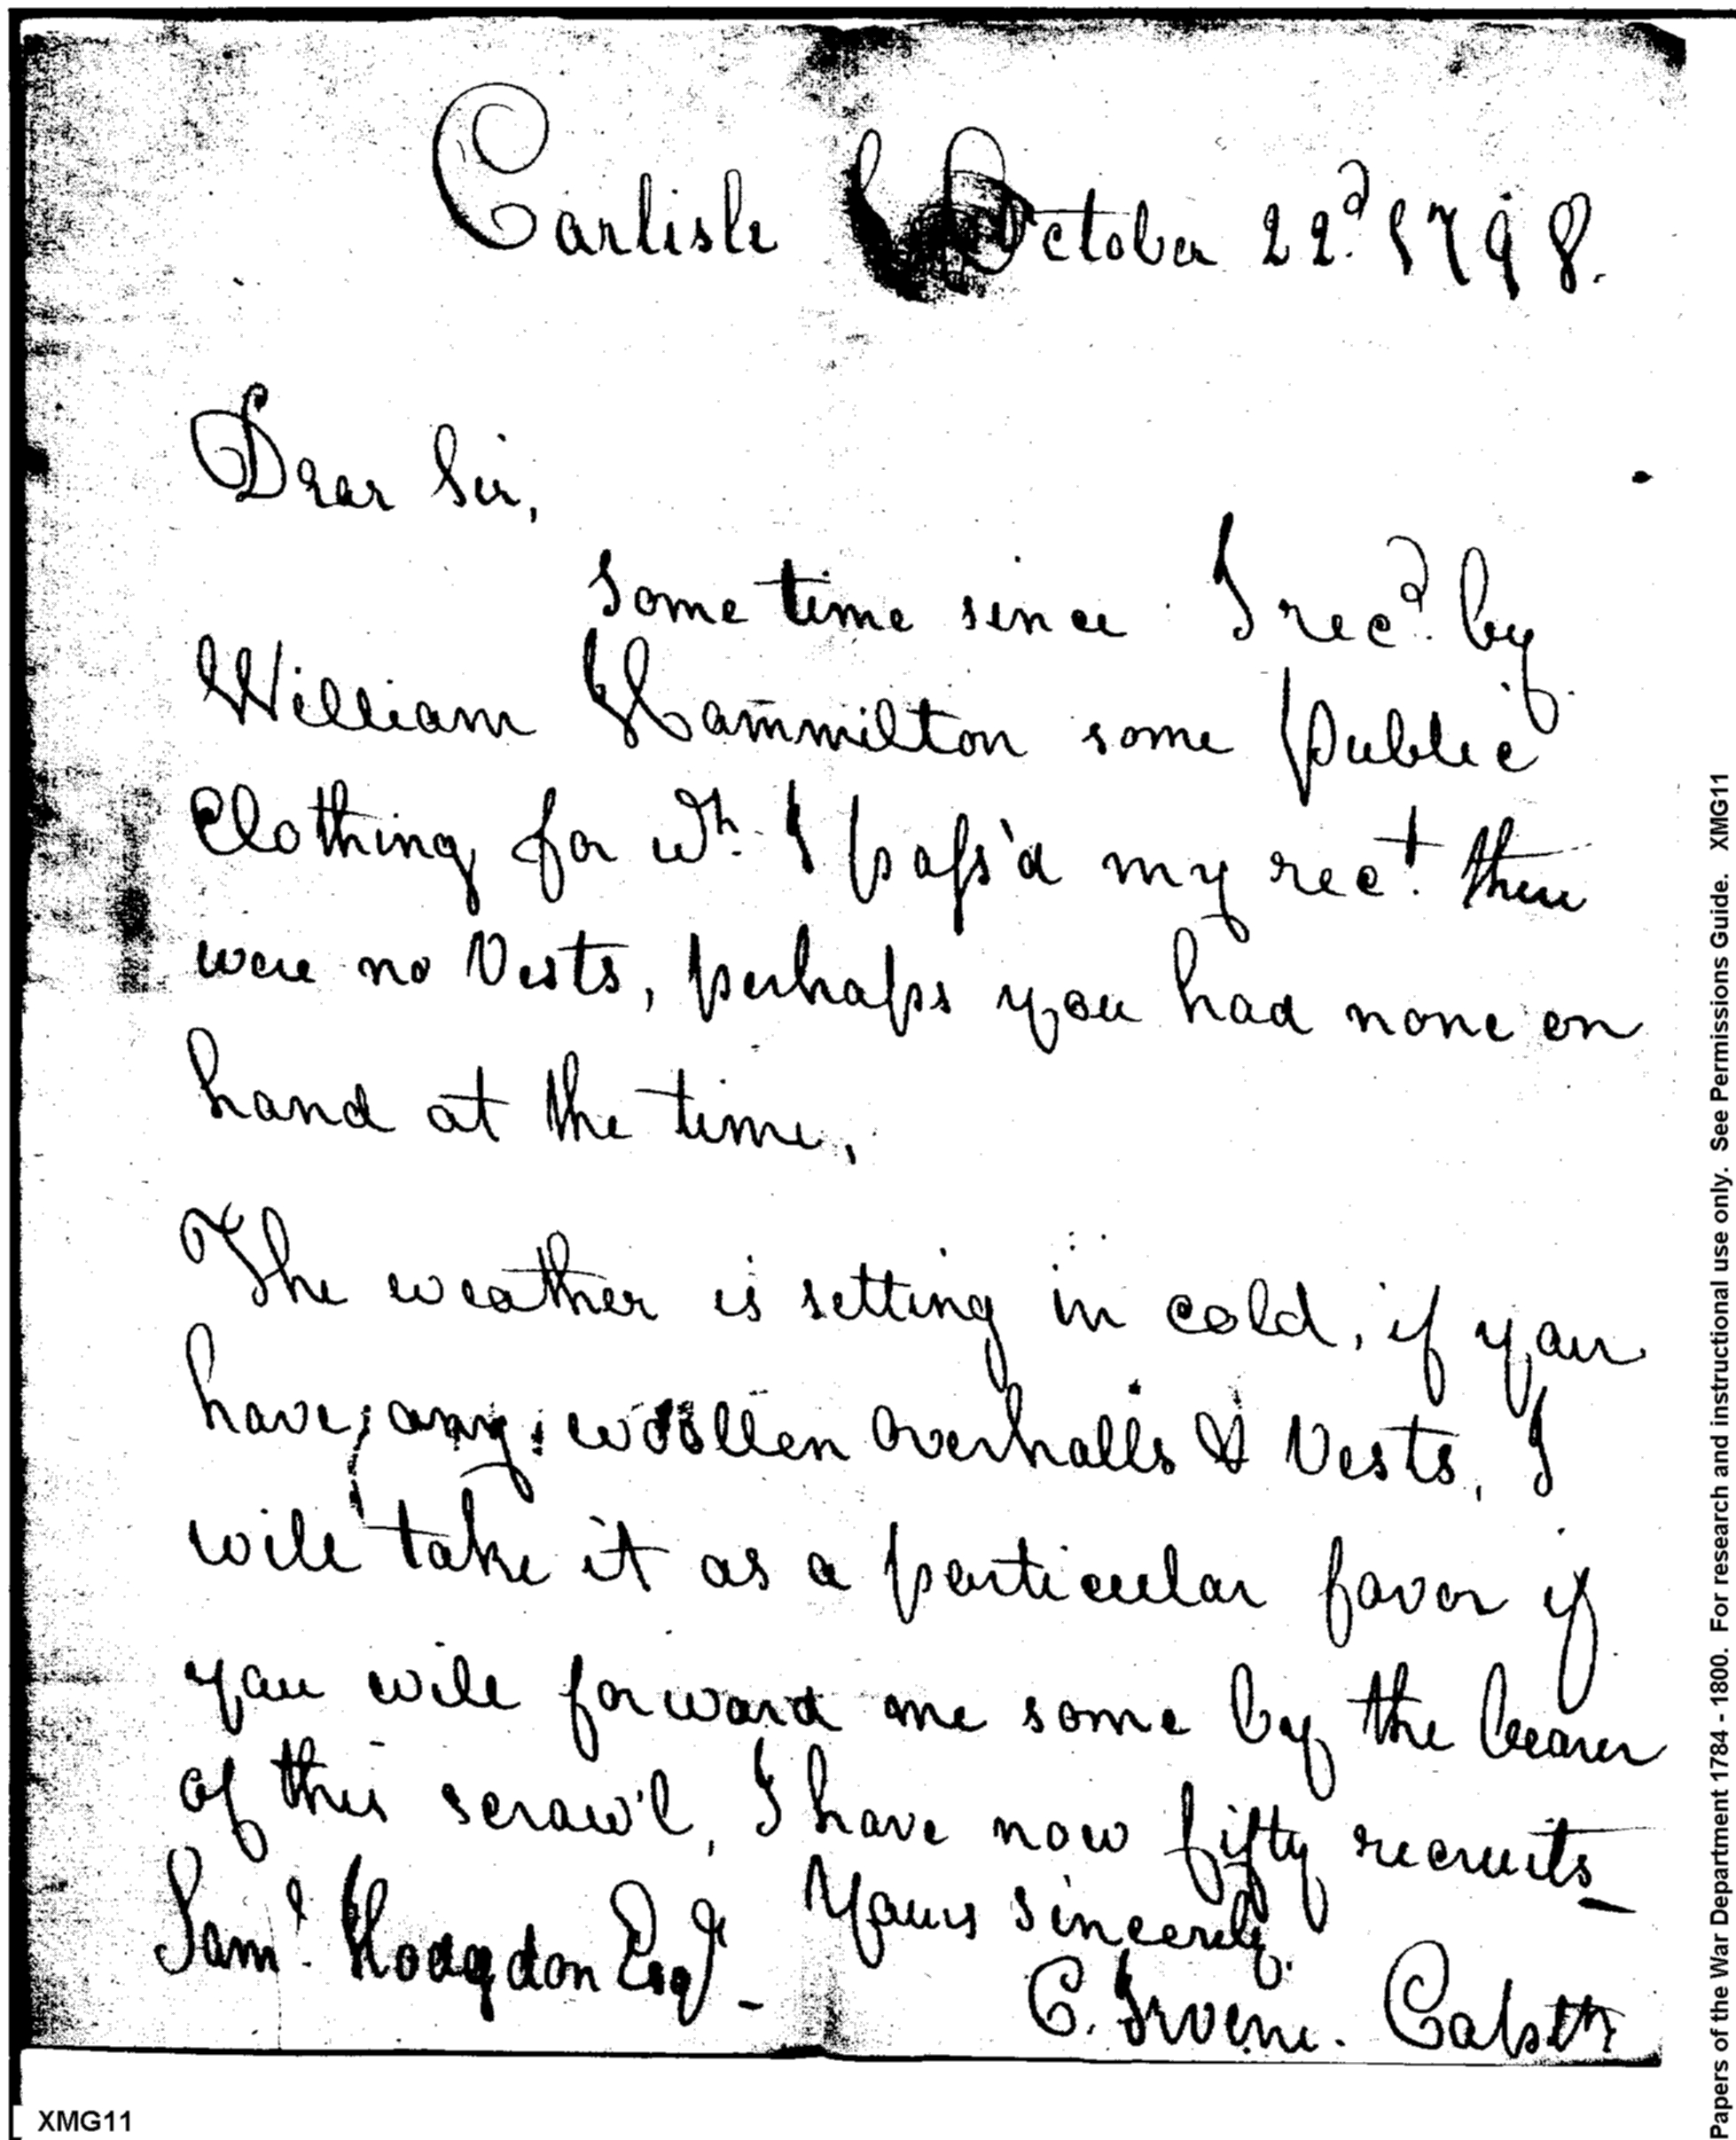 Carlisle October 22d. 1798.
Dear Sir,
Some time since I recd. by
William Hammilton some Public
Clothing for wh. I pass'd my rect. there
were no Vests, perhaps you had none on
hand at the time,
The weather is setting in cold, if you
have any woollen overhalls & Vests, I
will take it as a particular favor if
you will forward me some by the bearer
of this scraw'l, I have now fifty recruits
Yours sincerely.
Saml. Hodgdon Esqr. -
C. Irvine. Captn
XMG11
Papers of the War Department 1784 - 1800. For research and instructional use only. See Permissions Guide. XMG11